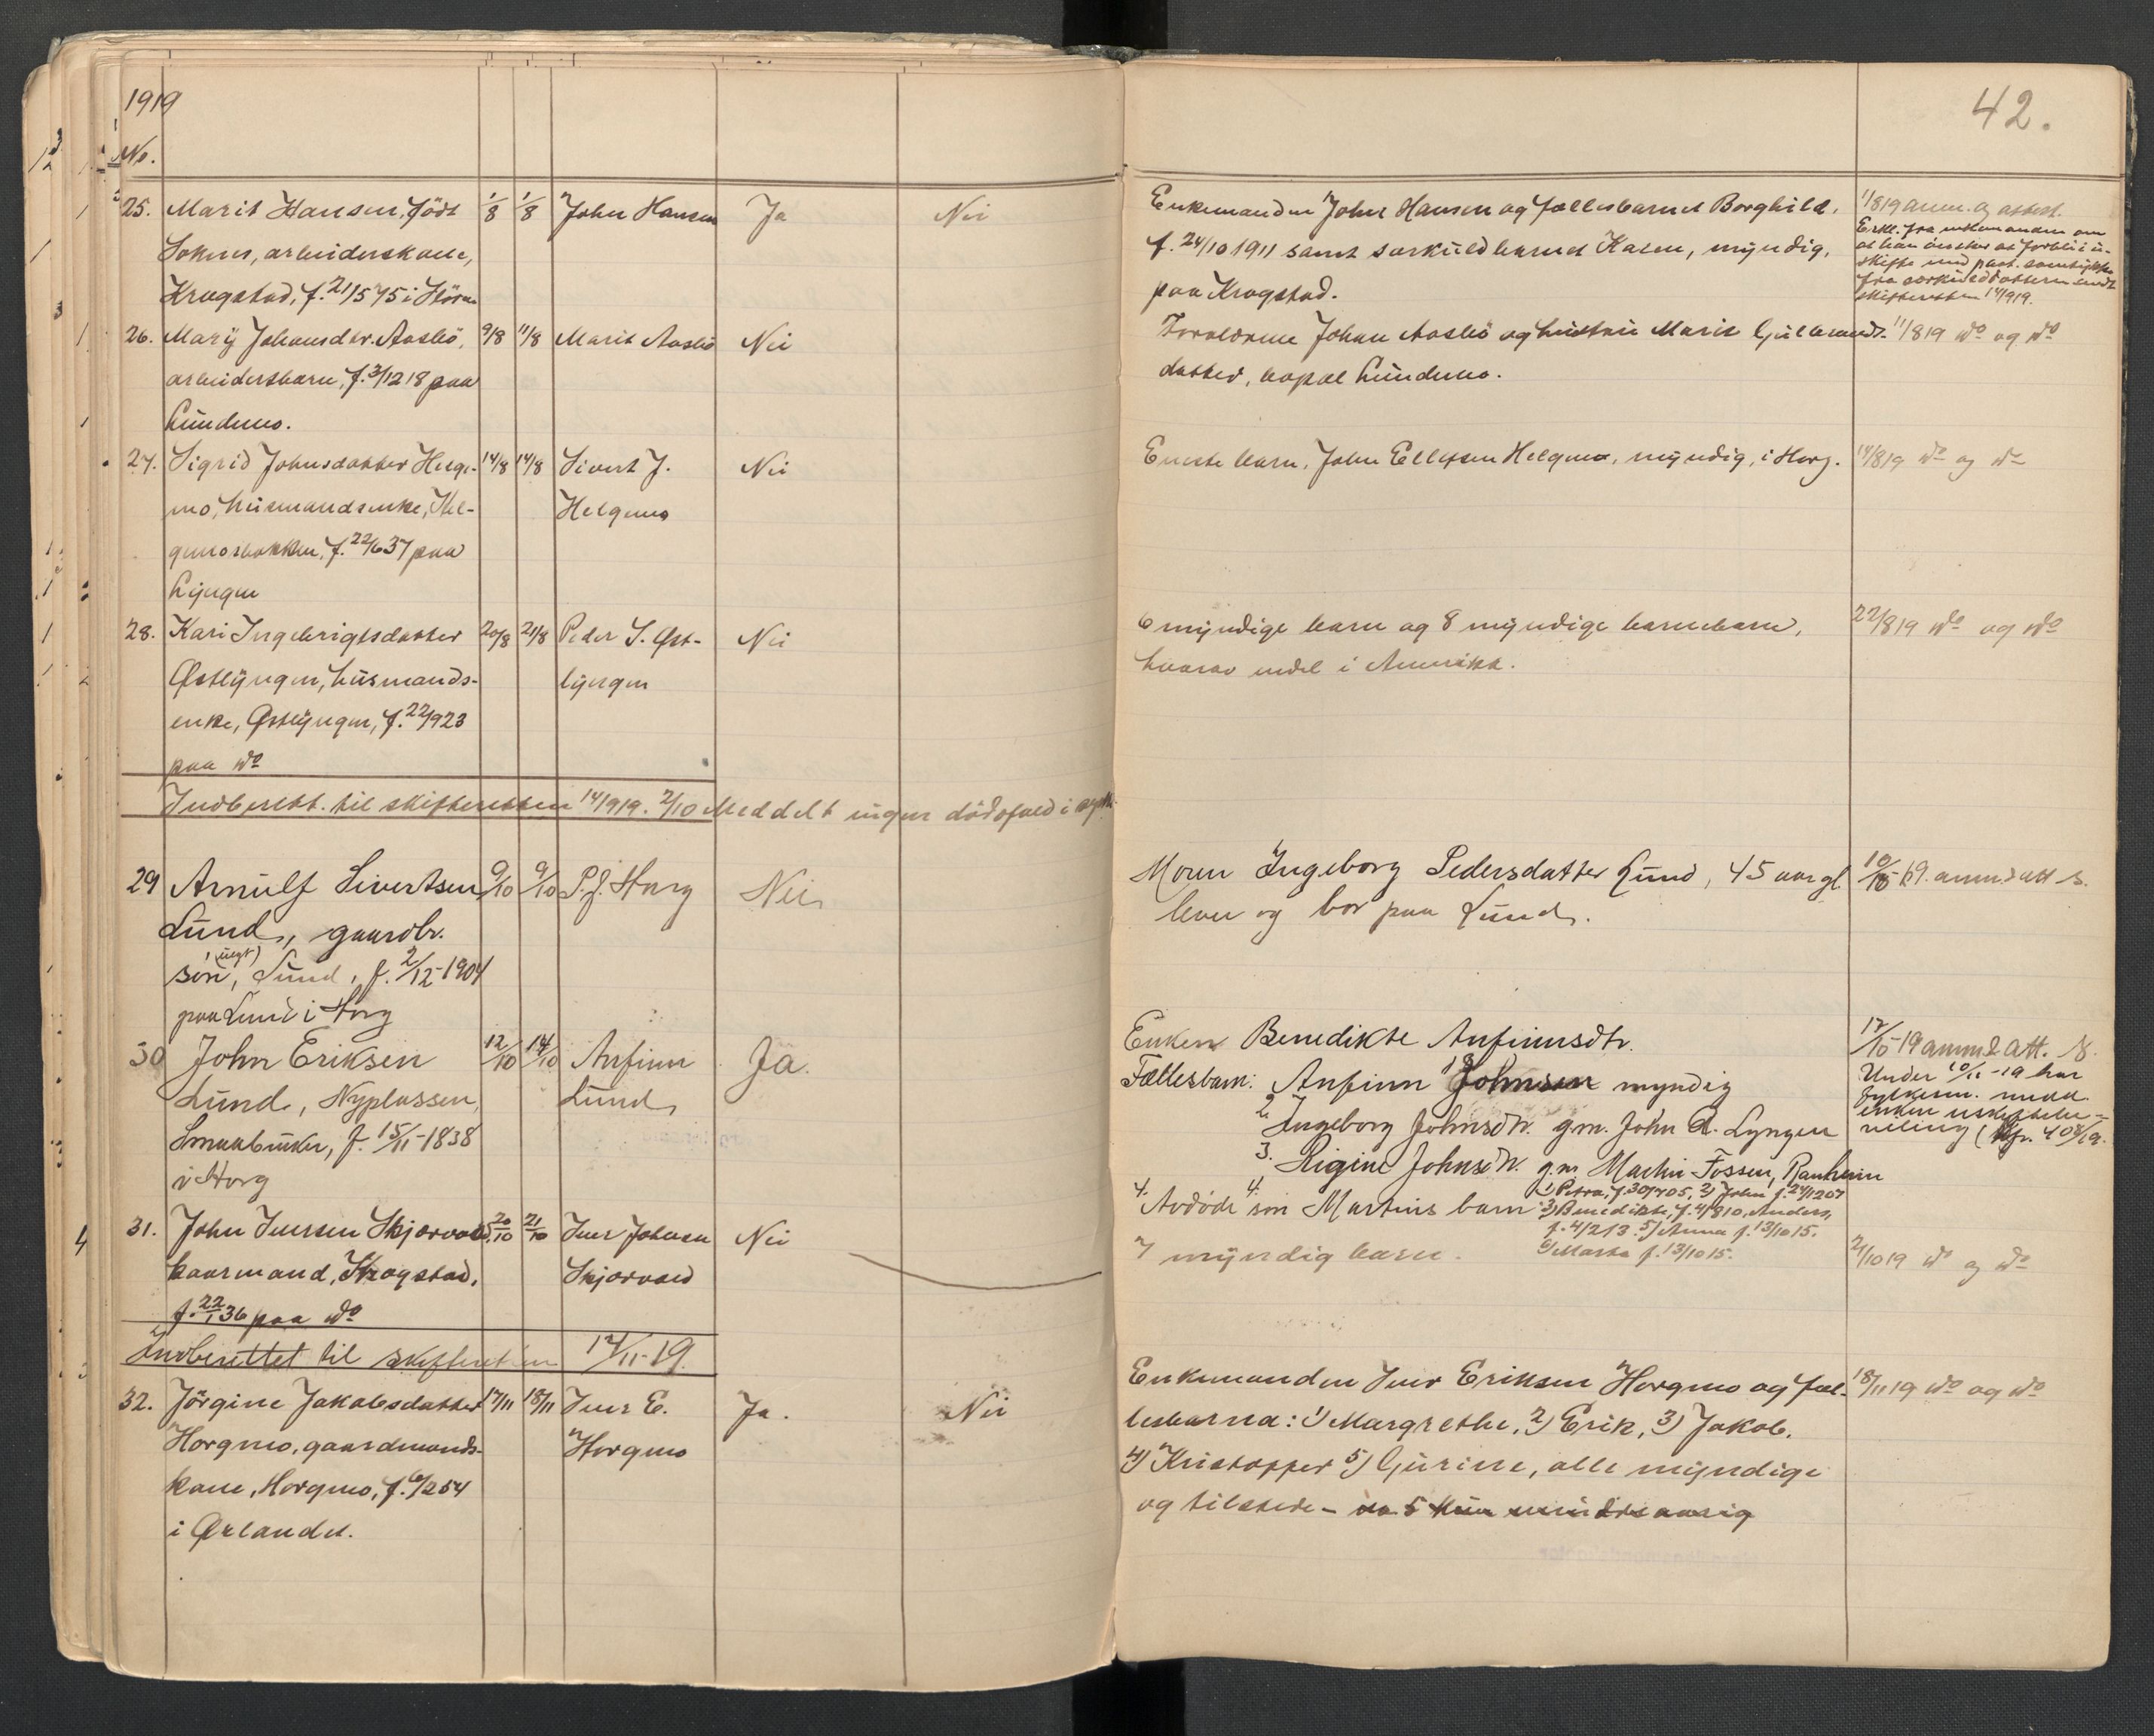 1919
No.
25. Marit Hansen, född 1/8 1/8 John Hansen Ja Nei
Soknes, arbeiderskone,
Krogstad, f. 21/5 75 i Støren
26. Mary Johansdtr. Aasbö, 9/8 11/8 Marit Aasbö Nei
arbeidersbarn, f. 3/12 18 paa
Lundemo.
27. Sigrid Johnsdatter Helge- 14/8 14/8 Sivert J. Nei
mo, husmandsenke, Hel- Helgemo
gemosbakken, f. 22/6 37 paa
Lyngen
28. Kari Ingebrigtsdatter 20/8 21/8 Peder S. Øst- Nei
Østlyngen, husmands- lyngen
enke, Østlyngen, f. 22/9 23
paa do
Indberett. til skifteretten 14/9 19. 2/10 Meddelt ingen dödsfald i septbr.
29 Arnulf Sivertsen 9/10 9/10 P. J. Horg Nei
Lund, gaardbr.
sön, (uegt) Lund, f. 2/12-1904
paa Lund i Horg
30 John Eriksen 12/10 14/10 Anfinn Ja.
Lund, Nyplassen, Lund
Smaabruker, f. 15/11-1838
i Horg
31. John Iversen Skjærvold, 20/10 21/10 Iver Johnsen Nei
kaarmand, Krogstad, Skjærvold
f. 22/1 36 paa do
Indberettet til skifteretten 14/11-19.
32. Jörgine Jakobsdatter 17/11 18/11 Iver E. Ja. Nei
Horgmo, gaardmands- Horgmo
kone, Horgmo, f. 6/2 54
i Ørlandet.
42.
Enkemanden John Hansen og fællesbarnet Borghild,
f. 24/10 1911 samt særkuldbarnet Karen, myndig,
paa Krogstad.
1/8 19 anm. og attest.
Erkl. fra enkemanden om
at han önsker at forbli i u-
skifte med paat. samtykke
fra særkulddatteren sendt
skifteretten 14/9 19.
Forældrene Johan Aasbö og hustru Marit Gulbrands- 11/8 19 do og do
datter, bopæl Lundemo.
Eneste barn, John Ellefsen Helgemo, myndig, i Horg. 14/8 19 do og do
6 myndige barn og 8 myndige barnebarn, 22/8 19 do og do
hvorav endel i Amerika.
Moren Ingeborg Pedersdatter Lund, 45 aar gl. 10/10 19. anm. & att s.
lever og bor paa Lund.
Enken Benedikte Anfinnsdtr.
Fællesbarn: 1 Anfinn Johnsen myndig
2. Ingeborg Johnsdtr. g.m. John A. Lyngen
3. Rigine Johnsdtr. g.m. Martin Fossen, Ranheim
4. Avdöde sön Martins barn 1) Petra, f. 30/7 05, 2) John f. 24/12 07
3) Benedikte, f. 4/8 10, Anders,
f. 4/2 13. 5) Anna f. 13/10 15.
6) Marta f. 13/10 15.
17/10-19 anm & att. s.
Under 10/11-19 har
fylkesm. medd.
enken uskiftebe-
villing (Kfr. 408/19.
7 myndig barn. 21/10 19 do og do
Enkemanden Iver Eriksen Horgmo og fæl- 18/11 19 do og do
lesbarna: 1) Margrethe, 2) Erik, 3) Jakob,
4) Kristoffer 5) Gurine, alle myndige
og tilstede - no. 5 kun mindreaarig